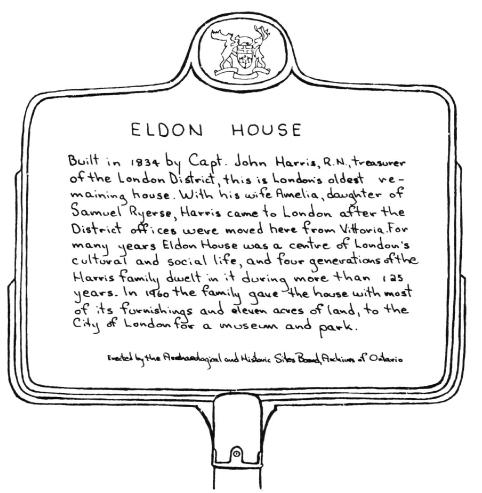 ELDON HOUSE
Built in 1834 by Capt. John Harris, R.N., treasurer
of the London District, this is London's oldest re-
maining house. With his wife Amelia, daughter of
Samuel Ryerse, Harris came to London after the
District offices were moved here from Vittoria. For
many years Eldon House was a centre of London's
cultural and social life, and four generations of the
Harris family dwelt in it during more than 125
years. In 1960 the family gave the house with most
of its furnishings and eleven acres of land, to the
City of London for a museum and park.
Erected by the Archaeological and Historic Sites Board, Archives of Ontario